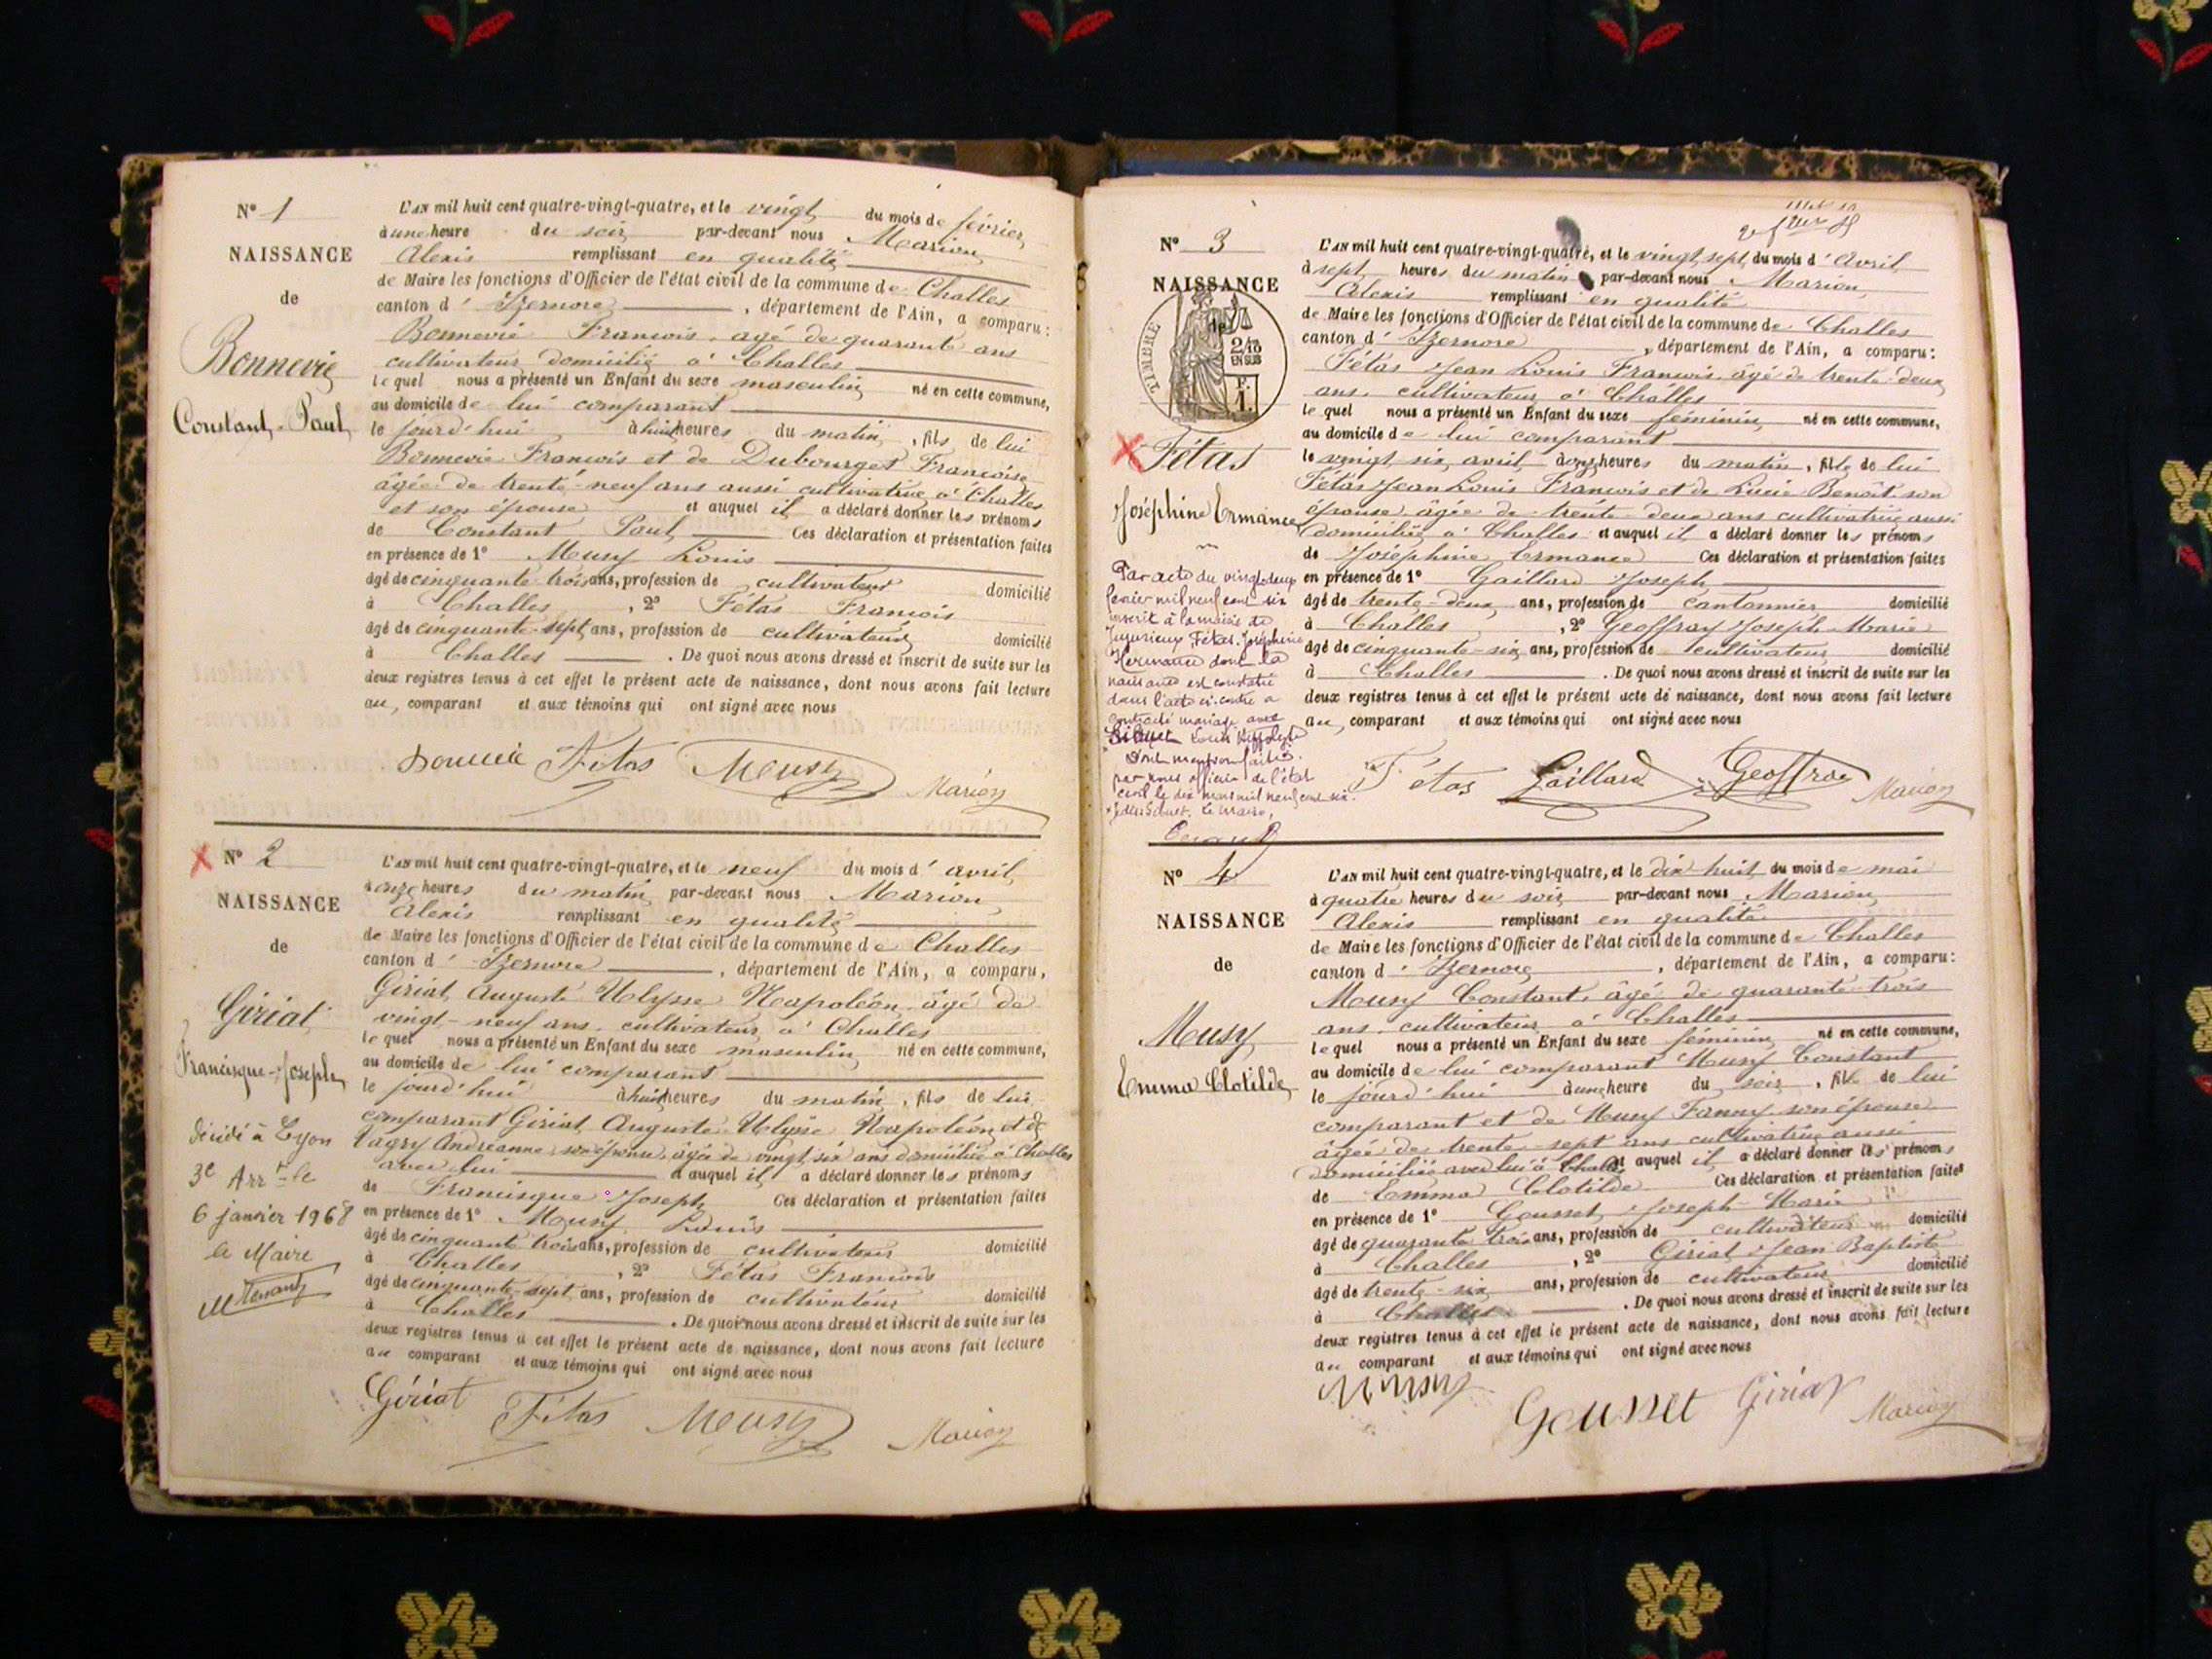 N° 1
NAISSANCE
de
Bonnevie
Constant-Paul
L'AN mil huit cent quatre-vingt-quatre, et le vingt du mois de février
à une heure du soir par-devant nous Marion
Alexis remplissant en qualité
de Maire les fonctions d'Officier de l'état civil de la commune de Challes
canton d'Izernore, département de l'Ain, a comparu:
Bonnevie François, âgé de quarante ans
cultivateur domicilié à Challes
lequel nous a présenté un Enfant du sexe masculin né en cette commune,
au domicile de lui comparant
le jourd'hui à huit heures du matin, fils de lui
Bonnevie François et de Dubourget Françoise
âgée de trente-neuf ans aussi cultivatrice à Challes
et son épouse et auquel il a déclaré donner les prénoms
de Constant Paul Ces déclaration et présentation faites
en présence de 1° Musy Louis
âgé de cinquante trois ans, profession de cultivateur domicilié
à Challes, 2° Fétas François
âgé de cinquante-sept ans, profession de cultivateur domicilié
à Challes. De quoi nous avons dressé et inscrit de suite sur les
deux registres tenus à cet effet le présent acte de naissance, dont nous avons fait lecture
au comparant et aux témoins qui ont signé avec nous
Fétas Musy Marion
N° 2
NAISSANCE
de
Giriat
Francisque-Joseph
à Lyon
3e Arrt le
6 janvier 1968
le Maire
L'AN mil huit cent quatre-vingt-quatre, et le neuf du mois d'avril
à onze heures du matin par-devant nous Marion
Alexis remplissant en qualité
de Maire les fonctions d'Officier de l'état civil de la commune de Challes
canton d'Izernore, département de l'Ain, a comparu,
Giriat Auguste Ulysse Napoléon, âgé de
vingt-neuf ans, cultivateur à Challes
lequel nous a présenté un Enfant du sexe masculin né en cette commune,
au domicile de lui comparant
le jourd'hui à huit heures du matin, fils de lui
comparant Giriat Auguste Ulysse Napoléon et de
Vagry Andréanne, son épouse, âgée de vingt six ans domiciliée à Challes
avec lui et auquel il a déclaré donner les prénoms
de Francisque Joseph Ces déclaration et présentation faites
en présence de 1° Musy Louis
âgé de cinquante trois ans, profession de cultivateur domicilié
à Challes, 2° Fétas François
âgé de cinquante sept ans, profession de cultivateur domicilié
à Challes. De quoi nous avons dressé et inscrit de suite sur les
deux registres tenus à cet effet le présent acte de naissance, dont nous avons fait lecture
au comparant et aux témoins qui ont signé avec nous
Giriat Fétas Musy Marion
N° 3
NAISSANCE
de
TIMBRE
2/10
EN SUS
F.
1.
Fétas
Joséphine Ermance
Par acte du vingt deux
février mil neuf cent six
inscrit à la mairie de
Jujurieux Fétas Joséphine
Hermance dont la
naissance est constatée
dans l'acte ci-contre a
contracté mariage avec
Louis Hippolyte
Dont mention faite
par nous officier de l'état
civil le dix mars mil neuf cent six.
Le Maire,
L'AN mil huit cent quatre-vingt-quatre, et le vingt sept du mois d'Avril
à sept heures du matin par-devant nous Marion
Alexis remplissant en qualité
de Maire les fonctions d'Officier de l'état civil de la commune de Challes
canton d'Izernore, département de l'Ain, a comparu:
Fétas Jean Louis François, âgé de trente-deux
ans, cultivateur à Challes
lequel nous a présenté un Enfant du sexe féminin né en cette commune,
au domicile de lui comparant
le vingt six avril à onze heures du matin, fille de lui
Fétas Jean Louis François et de Lucie Benoît son
épouse âgée de trente deux ans cultivatrice aussi
domiciliée à Challes et auquel il a déclaré donner les prénoms
de Joséphine Ermance Ces déclaration et présentation faites
en présence de 1° Gaillard Joseph
âgé de trente-deux ans, profession de cantonnier domicilié
à Challes, 2° Geoffray Joseph-Marie
âgé de cinquante-six ans, profession de cultivateur domicilié
à Challes. De quoi nous avons dressé et inscrit de suite sur les
deux registres tenus à cet effet le présent acte de naissance, dont nous avons fait lecture
au comparant et aux témoins qui ont signé avec nous
Fétas Gaillard Geoffray Marion
N° 4
NAISSANCE
de
Musy
Emma Clotilde
L'AN mil huit cent quatre-vingt-quatre, et le dix huit du mois de mai
à quatre heures du soir par-devant nous Marion
Alexis remplissant en qualité
de Maire les fonctions d'Officier de l'état civil de la commune de Challes
canton d'Izernore, département de l'Ain, a comparu:
Musy Constant, âgé de quarante-trois
ans, cultivateur à Challes
lequel nous a présenté un Enfant du sexe féminin né en cette commune,
au domicile de lui comparant Musy Constant
le jourd'hui à une heure du soir, fille de lui
comparant et de Musy Fanny son épouse
âgée de trente-sept ans cultivatrice aussi
domiciliée avec lui à Challes et auquel il a déclaré donner les prénoms
de Emma Clotilde Ces déclaration et présentation faites
en présence de 1° Gousset Joseph-Marie
âgé de quarante trois ans, profession de cultivateur domicilié
à Challes, 2° Giriat Jean Baptiste
âgé de trente-six ans, profession de cultivateur domicilié
à Challes. De quoi nous avons dressé et inscrit de suite sur les
deux registres tenus à cet effet le présent acte de naissance, dont nous avons fait lecture
au comparant et aux témoins qui ont signé avec nous
Musy Gousset Giriat Marion